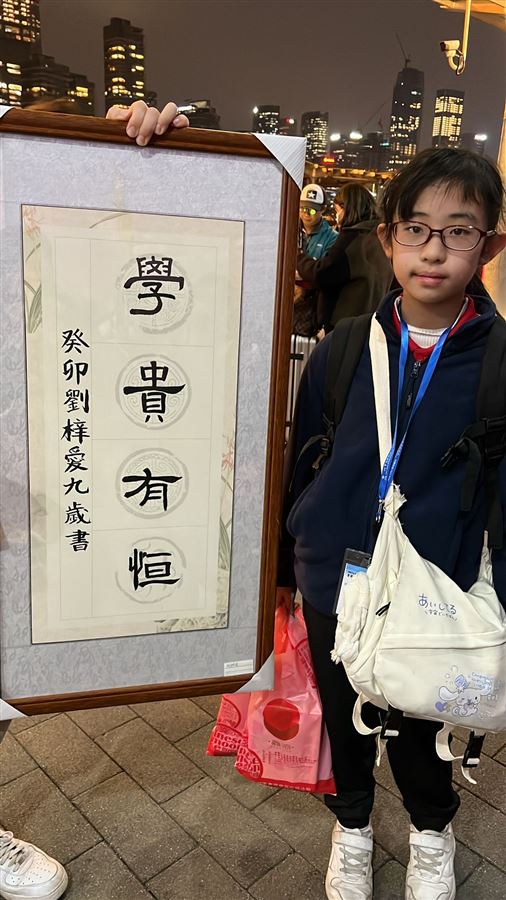 學貴有恒
癸卯劉梓愛九歲書
あいしてる